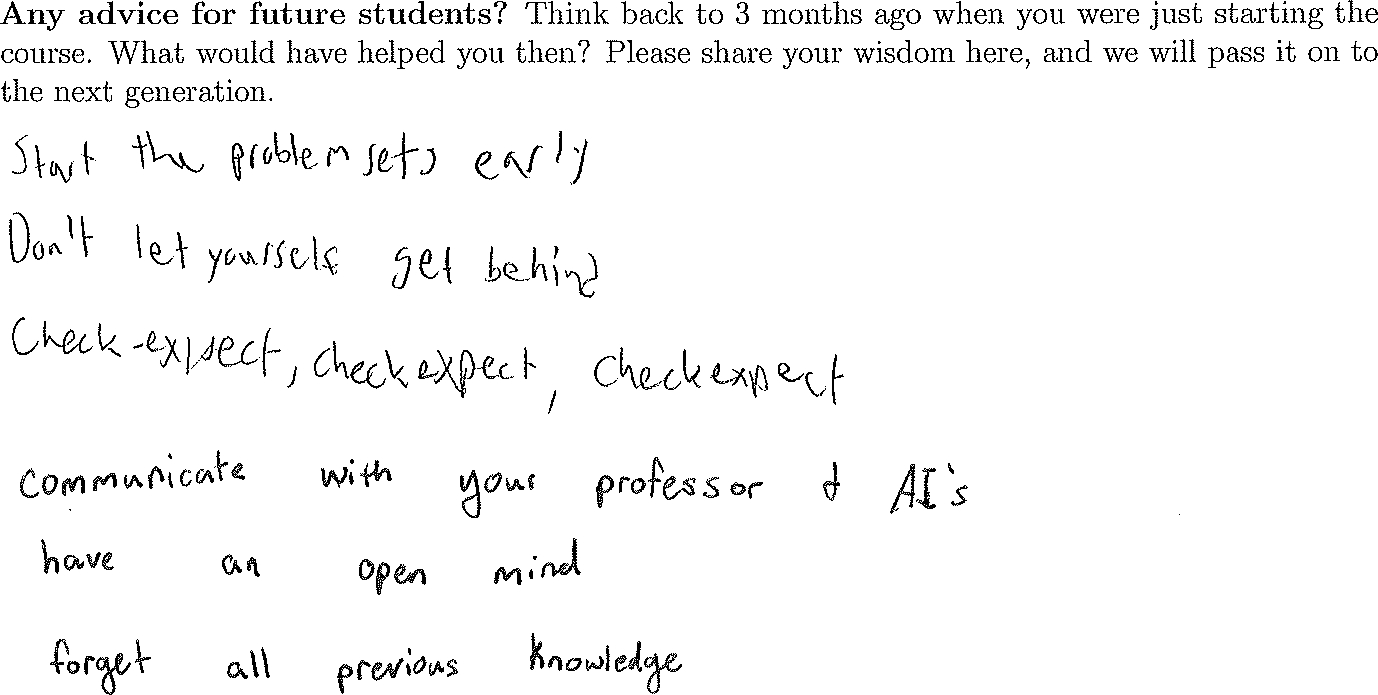 Any advice for future students? Think back to 3 months ago when you were just starting the
course. What would have helped you then? Please share your wisdom here, and we will pass it on to
the next generation.
Start the problem sets early
Don't let yourself get behind
Check-expect, check expect, check expect
communicate with your professor & AI's
have an open mind
forget all previous knowledge